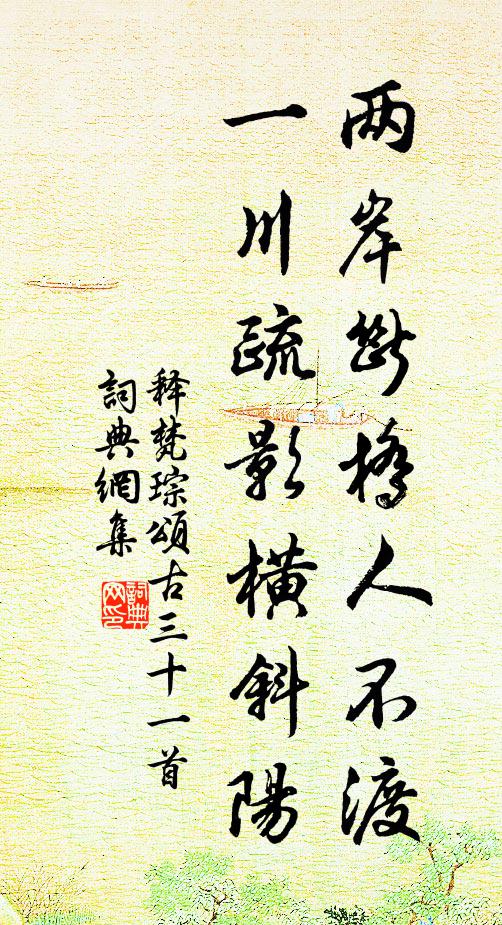 两岸断桥人不渡
一川疏影横斜陽
释梵琮頌古三十一首
詞典網集
詞典
网印